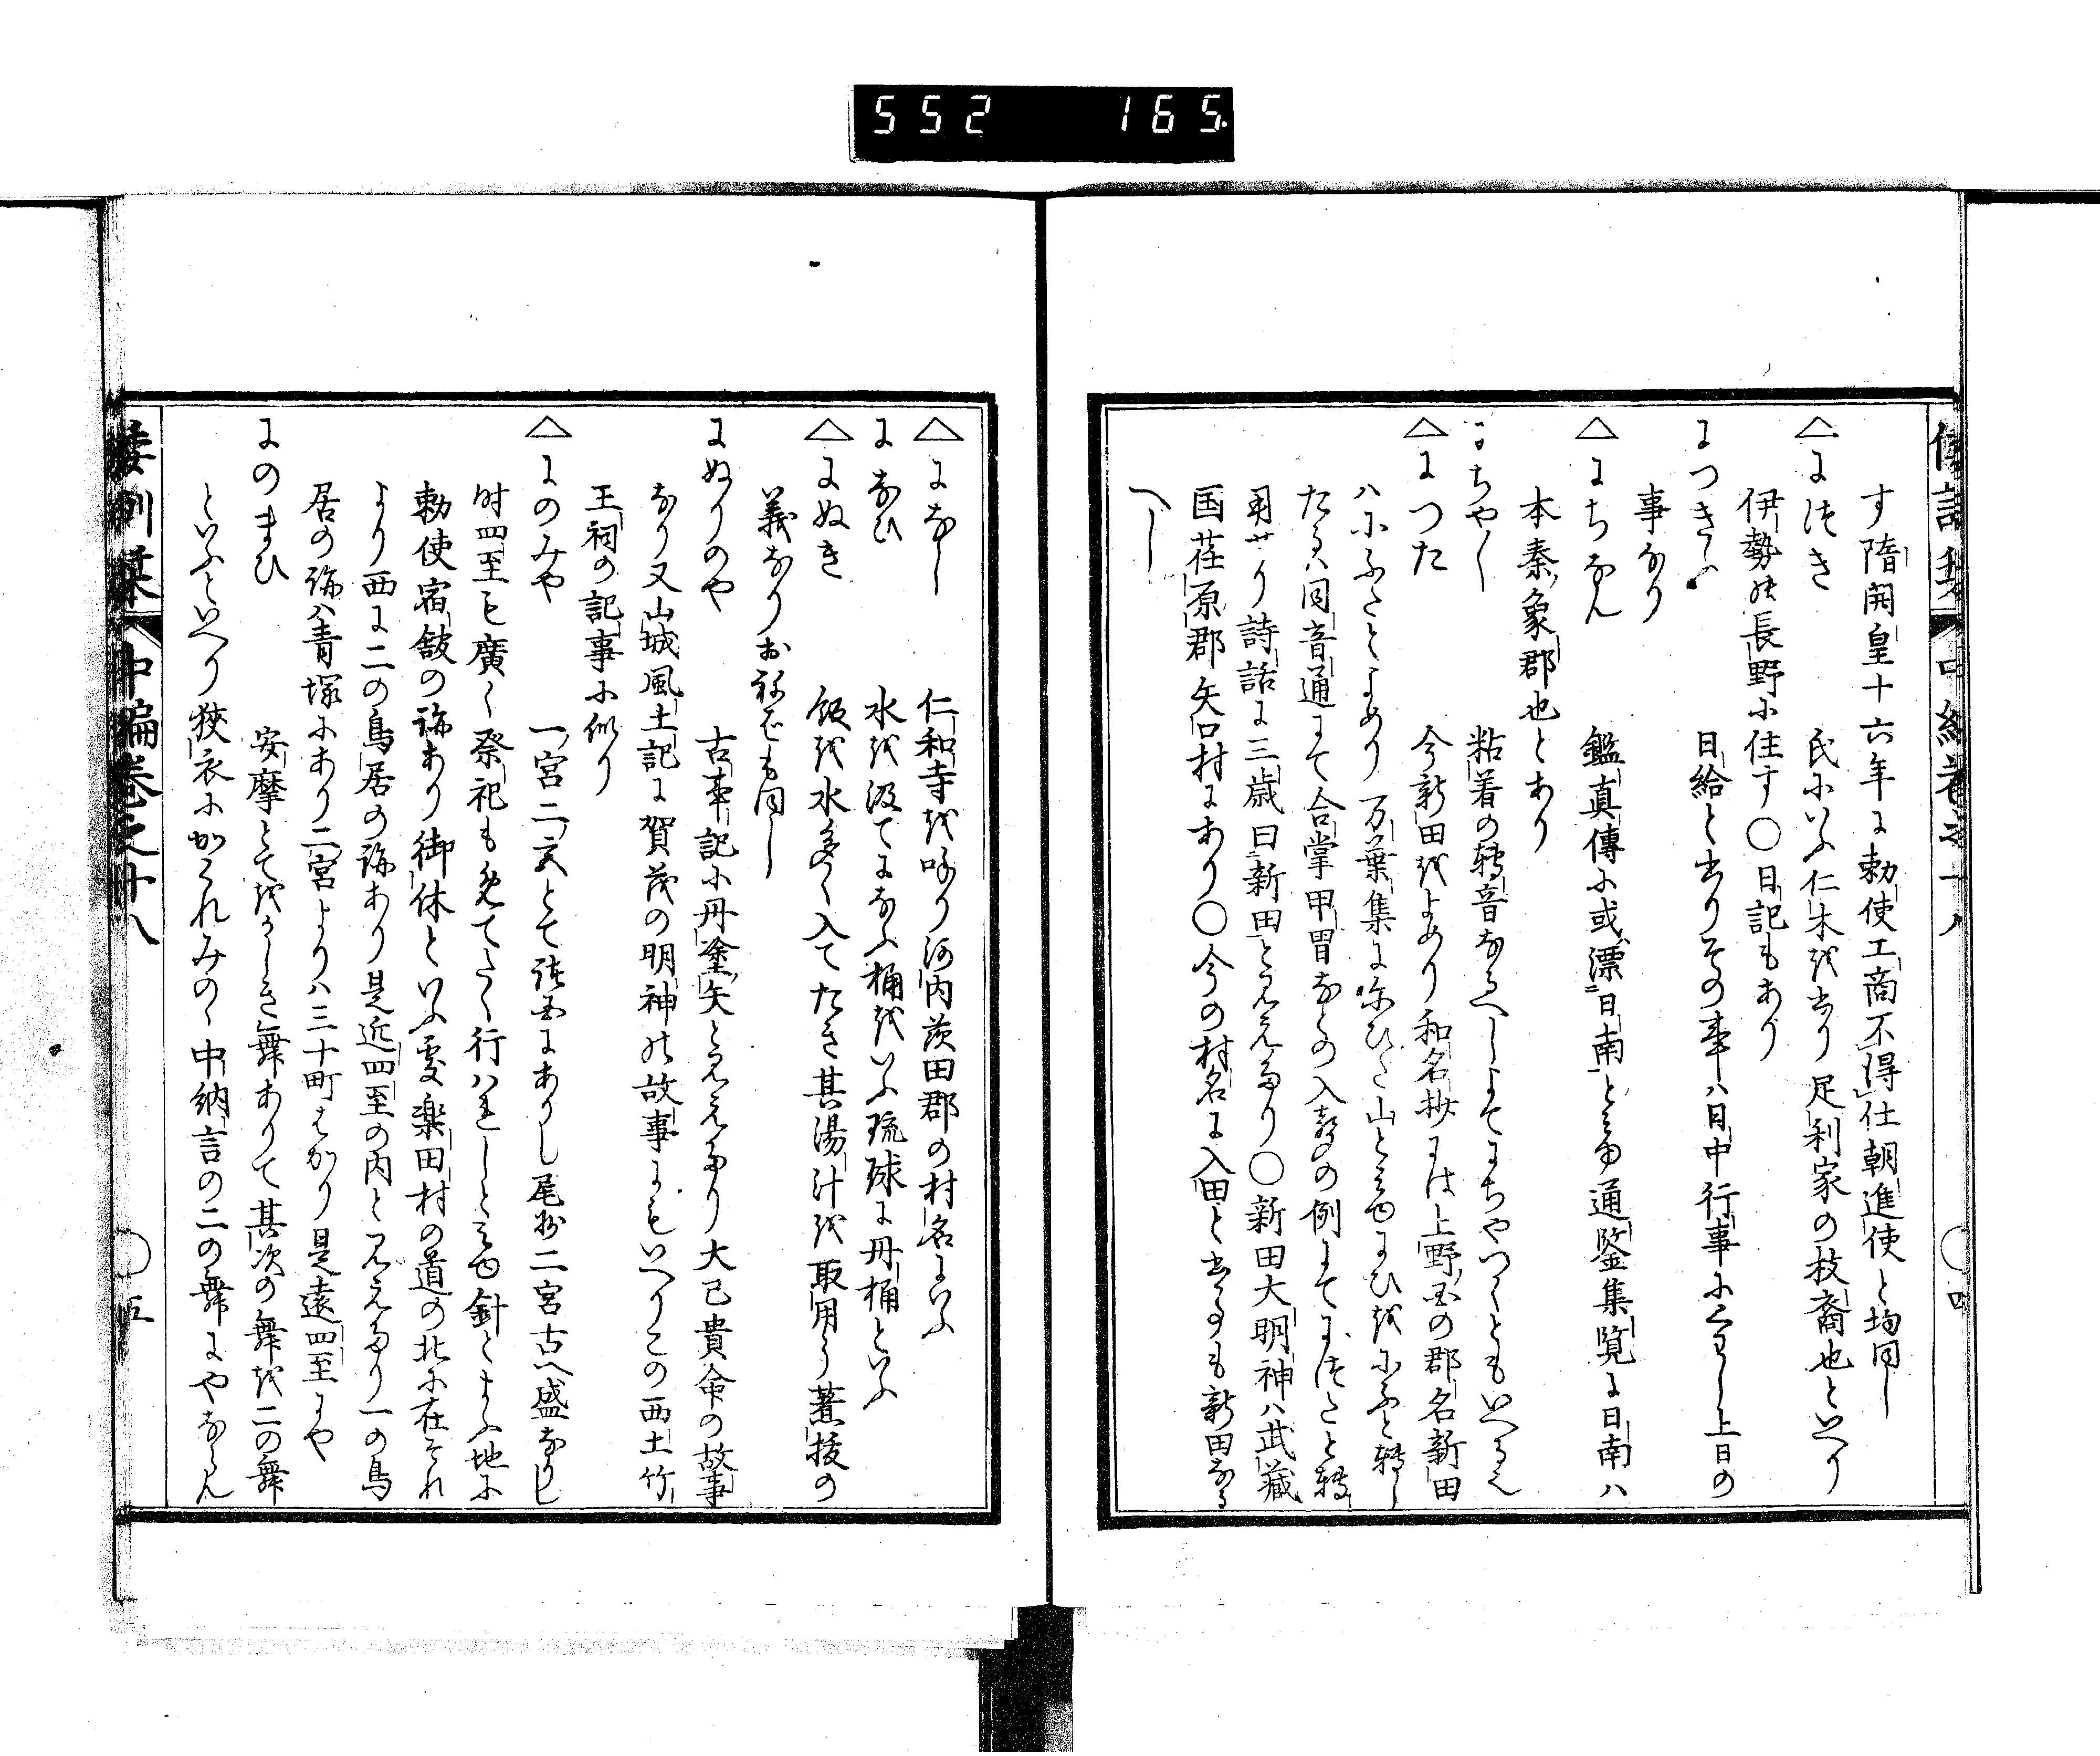 552 165.
す隋開皇十六年に勅使工商不得仕朝進使と均同し
△につき 氏にいふ仁木をよめり足利家の枝裔也といへり
伊勢の長野に住す〇日記もあり
につきふ 日給と書りその事ハ日中行事にくはし上日の
事なり
△にちなん 鑑真傳に或漂日南とみゆ通鑒集覧に日南ハ
本秦象郡也とあり
にちやく 粘着の轉音なるへしよてにちやつくともいへるん
△につた 今新田をよめり和名抄には上野国の郡名新田
ハにふたとよめり万葉集に にひた山とみゆにひをにふと轉し
たるハ同音通にて合掌甲冑なとの入聲の例にてにつたと轉
用せり詩話に三歳曰新田とみえたり〇新田大明神ハ武蔵
国荏原郡矢口村にあり〇今の村名に入田と書るも新田なる
へし
△になし 仁和寺を呼り河内茨田郡の村名にいふ
になひ 水を汲てになふ桶をいふ琉球に丹桶といふ
△にぬき 飯を水多く入てたき其湯汁を取用う煮抜の
義なりおねばも同し
にぬりのや 古事記に丹塗矢とみえたり大己貴命の故事
なり又山城風土記に賀茂の明神の故事にもいへりこの西土竹
王祠の記事に似り
△にのみや 一宮二宮とて諸国にありし尾州二宮古へ盛なりし
時四至も廣く祭祀も絶てたく行ハれしとみゆ針とまふ地に
勅使宿館の跡あり御休といふ処楽田村の道の北に在それ
より西に二の鳥居の跡あり是近四至の内とみえたり一の鳥
居の跡ハ青塚にあり二宮よりハ三十町はかり是遠四至にや
にのまひ 安摩とてをかしき舞ありて其次の舞を二の舞
といふといへり狭衣にかくれみのゝ中納言の二の舞にやならん
倭訓栞 中編巻之十八 〇五